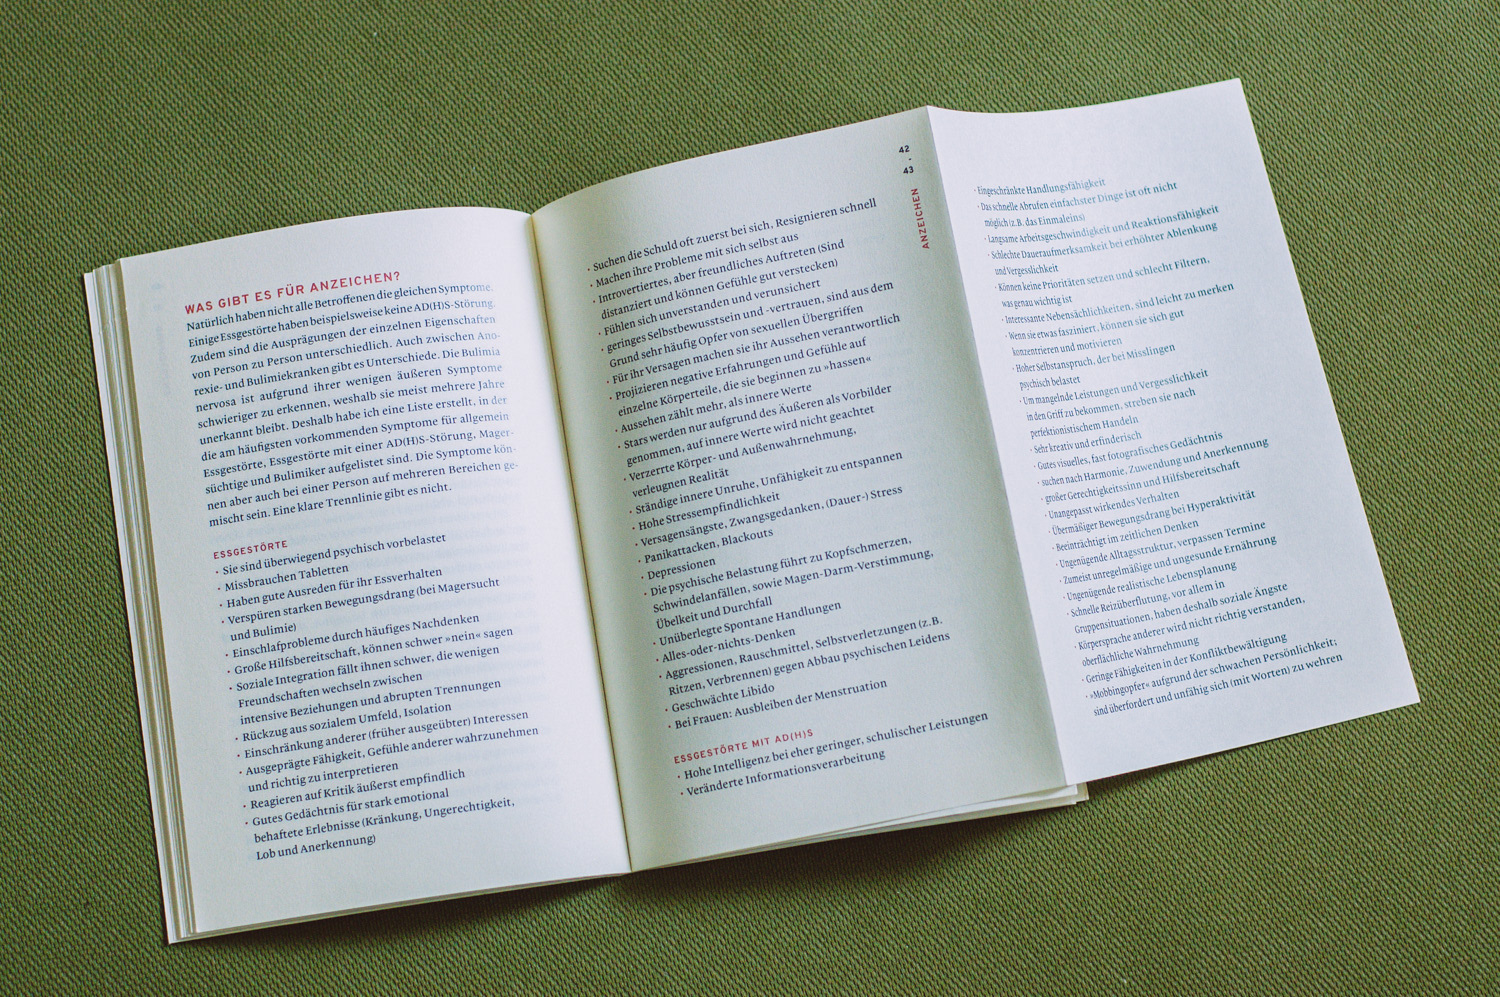 WAS GIBT ES FÜR ANZEICHEN?
Natürlich haben nicht alle Betroffenen die gleichen Symptome.
Einige Essgestörte haben beispielsweise keine AD(H)S-Störung.
Zudem sind die Ausprägungen der einzelnen Eigenschaften
von Person zu Person unterschiedlich. Auch zwischen Ano-
rexie- und Bulimiekranken gibt es Unterschiede. Die Bulimia
nervosa ist aufgrund ihrer wenigen äußeren Symptome
schwieriger zu erkennen, weshalb sie meist mehrere Jahre
unerkannt bleibt. Deshalb habe ich eine Liste erstellt, in der
die am häufigsten vorkommenden Symptome für allgemein
Essgestörte, Essgestörte mit einer AD(H)S-Störung, Mager-
süchtige und Bulimiker aufgelistet sind. Die Symptome kön-
nen aber auch bei einer Person auf mehreren Bereichen ge-
mischt sein. Eine klare Trennlinie gibt es nicht.
ESSGESTÖRTE
· Sie sind überwiegend psychisch vorbelastet
· Missbrauchen Tabletten
· Haben gute Ausreden für ihr Essverhalten
· Verspüren starken Bewegungsdrang (bei Magersucht
und Bulimie)
· Einschlafprobleme durch häufiges Nachdenken
· Große Hilfsbereitschaft, können schwer »nein« sagen
· Soziale Integration fällt ihnen schwer, die wenigen
Freundschaften wechseln zwischen
intensive Beziehungen und abrupten Trennungen
· Rückzug aus sozialem Umfeld, Isolation
· Einschränkung anderer (früher ausgeübter) Interessen
· Ausgeprägte Fähigkeit, Gefühle anderer wahrzunehmen
und richtig zu interpretieren
· Reagieren auf Kritik äußerst empfindlich
· Gutes Gedächtnis für stark emotional
behaftete Erlebnisse (Kränkung, Ungerechtigkeit,
Lob und Anerkennung)
42
-
43
ANZEICHEN
· Suchen die Schuld oft zuerst bei sich, Resignieren schnell
· Machen ihre Probleme mit sich selbst aus
· Introvertiertes, aber freundliches Auftreten (Sind
distanziert und können Gefühle gut verstecken)
· Fühlen sich unverstanden und verunsichert
· geringes Selbstbewusstsein und -vertrauen, sind aus dem
Grund sehr häufig Opfer von sexuellen Übergriffen
· Für ihr Versagen machen sie ihr Aussehen verantwortlich
· Projizieren negative Erfahrungen und Gefühle auf
einzelne Körperteile, die sie beginnen zu »hassen«
· Aussehen zählt mehr, als innere Werte
· Stars werden nur aufgrund des Äußeren als Vorbilder
genommen, auf innere Werte wird nicht geachtet
· Verzerrte Körper- und Außenwahrnehmung,
verleugnen Realität
· Ständige innere Unruhe, Unfähigkeit zu entspannen
· Hohe Stressempfindlichkeit
· Versagensängste, Zwangsgedanken, (Dauer-) Stress
· Panikattacken, Blackouts
· Depressionen
· Die psychische Belastung führt zu Kopfschmerzen,
Schwindelanfällen, sowie Magen-Darm-Verstimmung,
Übelkeit und Durchfall
· Unüberlegte Spontane Handlungen
· Alles-oder-nichts-Denken
· Aggressionen, Rauschmittel, Selbstverletzungen (z. B.
Ritzen, Verbrennen) gegen Abbau psychischen Leidens
· Geschwächte Libido
· Bei Frauen: Ausbleiben der Menstruation
ESSGESTÖRTE MIT AD(H)S
· Hohe Intelligenz bei eher geringer, schulischer Leistungen
· Veränderte Informationsverarbeitung
· Eingeschränkte Handlungsfähigkeit
· Das schnelle Abrufen einfachster Dinge ist oft nicht
möglich (z.B. das Einmaleins)
· Langsame Arbeitsgeschwindigkeit und Reaktionsfähigkeit
· Schlechte Daueraufmerksamkeit bei erhöhter Ablenkung
und Vergesslichkeit
· Können keine Prioritäten setzen und schlecht Filtern,
was genau wichtig ist
· Interessante Nebensächlichkeiten, sind leicht zu merken
· Wenn sie etwas fasziniert, können sie sich gut
konzentrieren und motivieren
· Hoher Selbstanspruch, der bei Misslingen
psychisch belastet
· Um mangelnde Leistungen und Vergesslichkeit
in den Griff zu bekommen, streben sie nach
perfektionistischem Handeln
· Sehr kreativ und erfinderisch
· Gutes visuelles, fast fotografisches Gedächtnis
· suchen nach Harmonie, Zuwendung und Anerkennung
· großer Gerechtigkeitssinn und Hilfsbereitschaft
· Unangepasst wirkendes Verhalten
· Übermäßiger Bewegungsdrang bei Hyperaktivität
· Beeinträchtigt im zeitlichen Denken
· Ungenügende Alltagsstruktur, verpassen Termine
· Zumeist unregelmäßige und ungesunde Ernährung
· Ungenügende realistische Lebensplanung
· Schnelle Reizüberflutung, vor allem in
Gruppensituationen, haben deshalb soziale Ängste
· Körpersprache anderer wird nicht richtig verstanden,
oberflächliche Wahrnehmung
· Geringe Fähigkeiten in der Konfliktbewältigung
· »Mobbingopfer« aufgrund der schwachen Persönlichkeit;
sind überfordert und unfähig sich (mit Worten) zu wehren